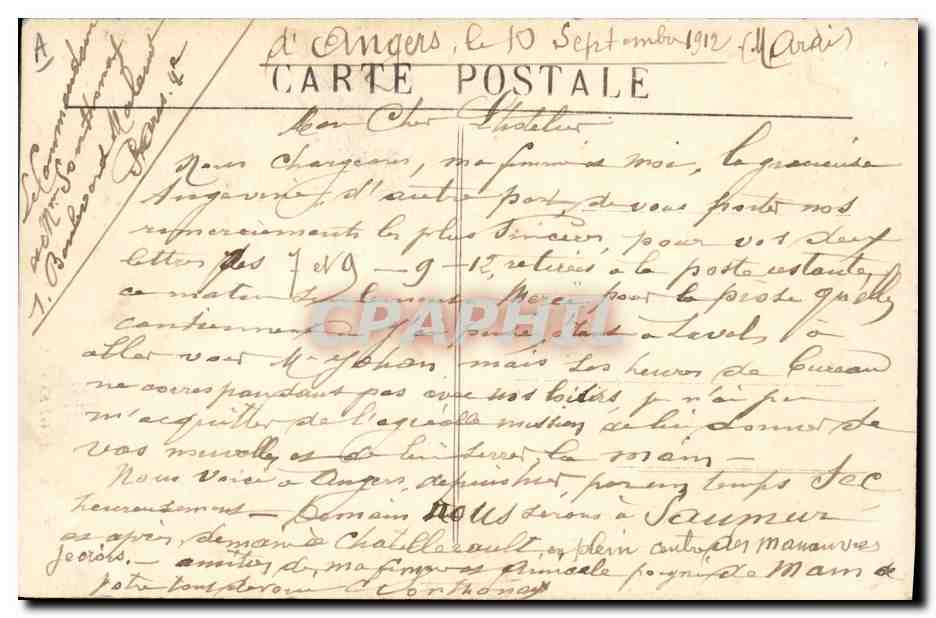 A
Le Commandant
et Mme
7. Boulevard Malesherbes
Paris. 8e
d'Angers, le 10 Septembre 1912 (Mardi)
CARTE POSTALE
Mon Cher
Nous chargeons, ma femme et moi, la gracieuse
Angevine d'autre part, de vous porter nos
remerciements les plus sincères, pour vos deux
lettres des 7 et 9 - 9 - 12, retirées à la poste restante,
ce matin seulement. Merci pour la prose qu'elles
contiennent. J'ai pensé étant à Laval, à
aller voir Mr mais les heures de bureau
ne correspondant pas avec nos loisirs, je n'ai pu
m'acquitter de l'agréable mission de lui donner de
vos nouvelles et de lui serrer la main -
Nous voici à Angers, depuis hier, par un temps sec
heureusement - Demain nous serons à Saumur
et après demain à Chatellerault, en plein centre des manœuvres
je crois. - amitiés de ma femme et amicale poignée de main de
votre tout dévoué
CPAPHIL